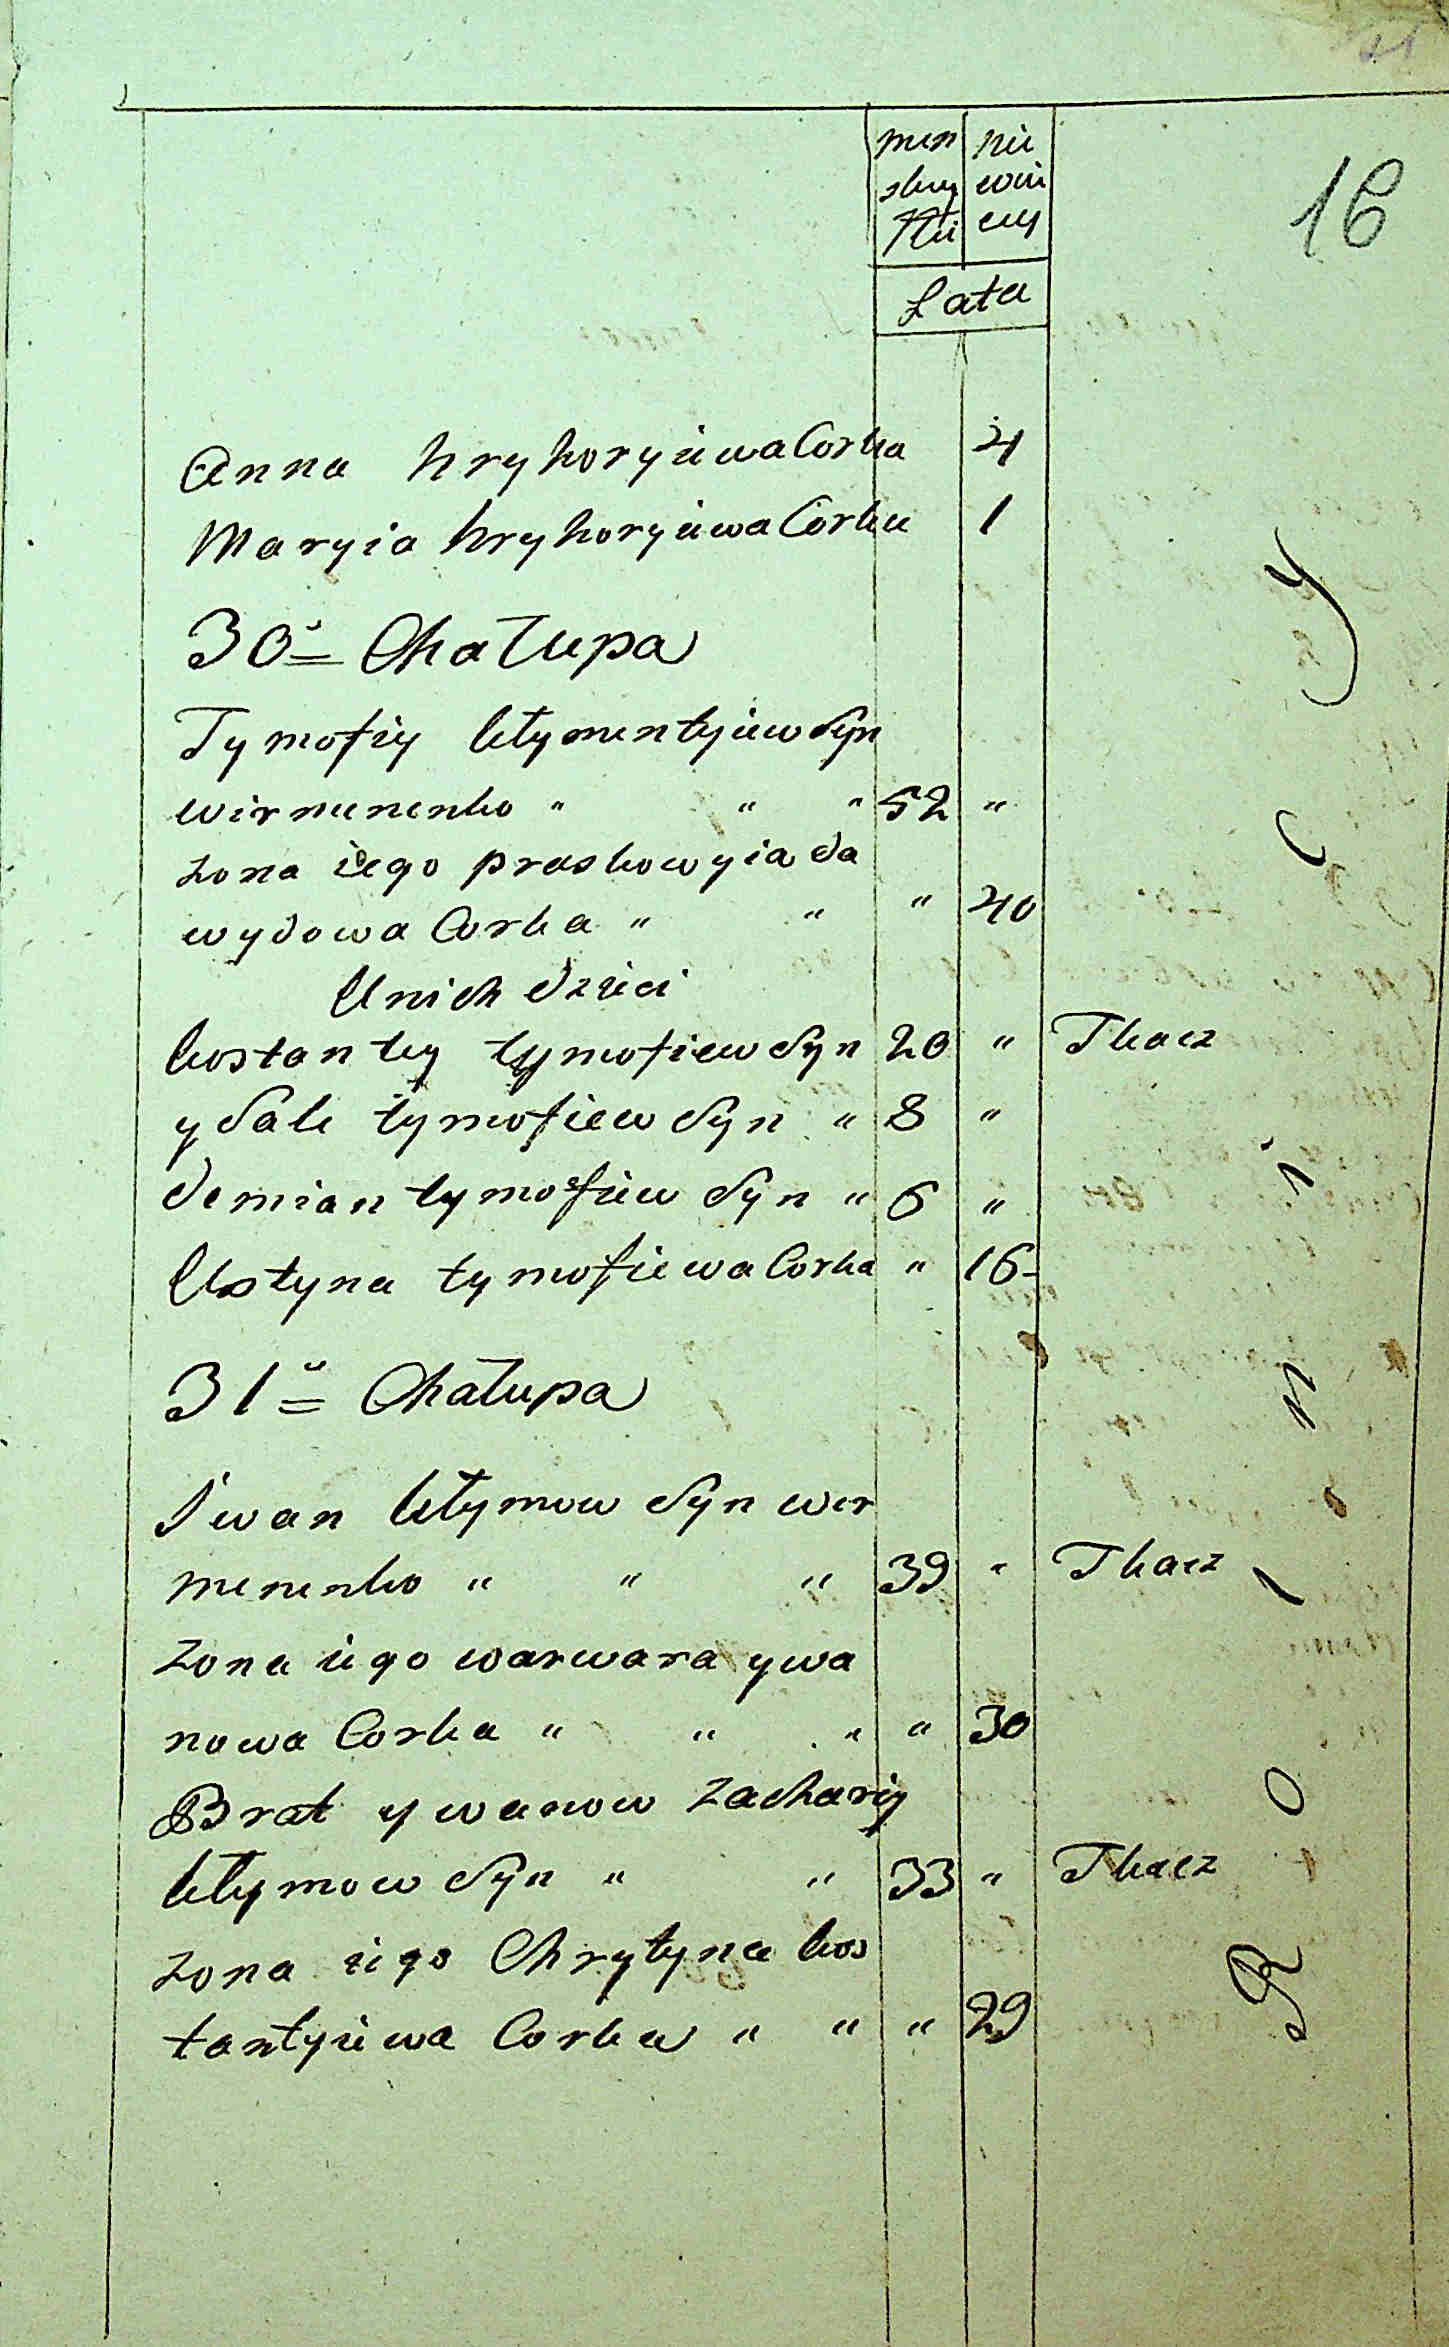 21
16
men nie
skey wie
Płci cey
Lata
Anna hryhoryiewa Corka 4
Maryia hryhoryiewa Corka 1
30ª Chałupa
Tymofiy kłymentyiew Syn
wirmenenko " " " 52 "
zona iego praskowyia da
wydowa Corka " " " 40
U nich dzieci
kostantey tymofiew Syn 20 " Tkacz
ysak tymofiew Syn " 8 "
demian tymofiew Syn " 6 "
Ustyna tymofiewa Corka " 16
31ª Chałupa
Iwan kłymow Syn wer
menenko " " " 39 " Tkacz
zona iego warwara ywa
nowa Corka " " " " 30
Brat ywanow zachariy
kłymow Syn " " 33 " Tkacz
zona iego Chrytyna kos
tantyiewa Corka " " " 29
Rolnicy